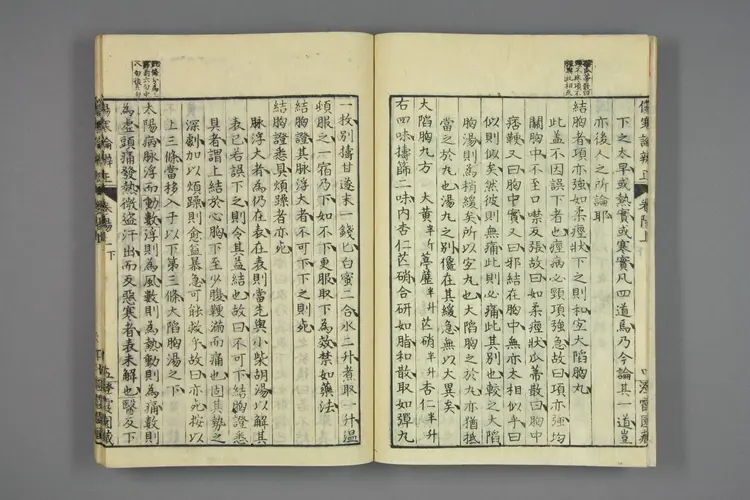 下之太早或熱實或寒實凡四道焉乃今論其一道豈
亦後人之所論耶
結胸者項亦強如柔痙狀下之則和宜大陷胸丸
此蓋不因誤下者也痙病必頸項強急故曰項亦強均
關胸中不至口噤反張故曰如柔痙狀瓜蒂散曰胸中
痞鞕又曰胸中實又曰邪結在胸中無亦太相似乎曰
似則似矣然彼則無痛此則必痛此其別也較之大陷
胸湯則為稍緩矣所以空九也大陷胸之於九也猶抵
當之於九也湯九之別僅在其緩急無以大異矣
大陷胸九方 大黃半斤葶藶半升芒硝半升杏仁半升
右四味擣篩二味内杏仁芒硝合研如脂和散取如彈九
一枚別擣甘遂末一錢匕白蜜二合水二升煮取一升溫
頓服之一宿乃下如不下更服取下為效禁如藥法
結胸證其脉浮大者不可下下之則死
結胸證悉具煩躁者亦死
脉浮大者為仍在表在表則當先與小柴胡湯以解其
表已若誤下之則令其益結也故曰不可下結胸證悉
具者謂上結於心胸下至少腹鞕滿而痛也固其勢之
深劇加以煩躁則愈益暴急可能救乎故曰亦死按以
上三條當移入于以下第三條大陷胸湯之下
太陽病脉浮而動數浮則為風數則為熱動則為痛數則
為虛頭痛發熱微盜汗出而反惡寒者表未解也醫反下
傷寒論辨正
下